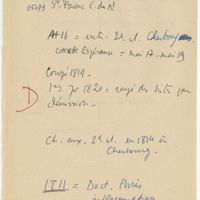 05073 St Brieuc C. du N.
At 16 = entr. 2e cl. Cherbourg
corvette Espérance = mai 17 - mai 19
Congé 1819.
1er Jr 1820 = rayé des listes par
démission.
D
Ch. aux. 2e cl. en 1814 à
Cherbourg.
1811 = Doct. Paris